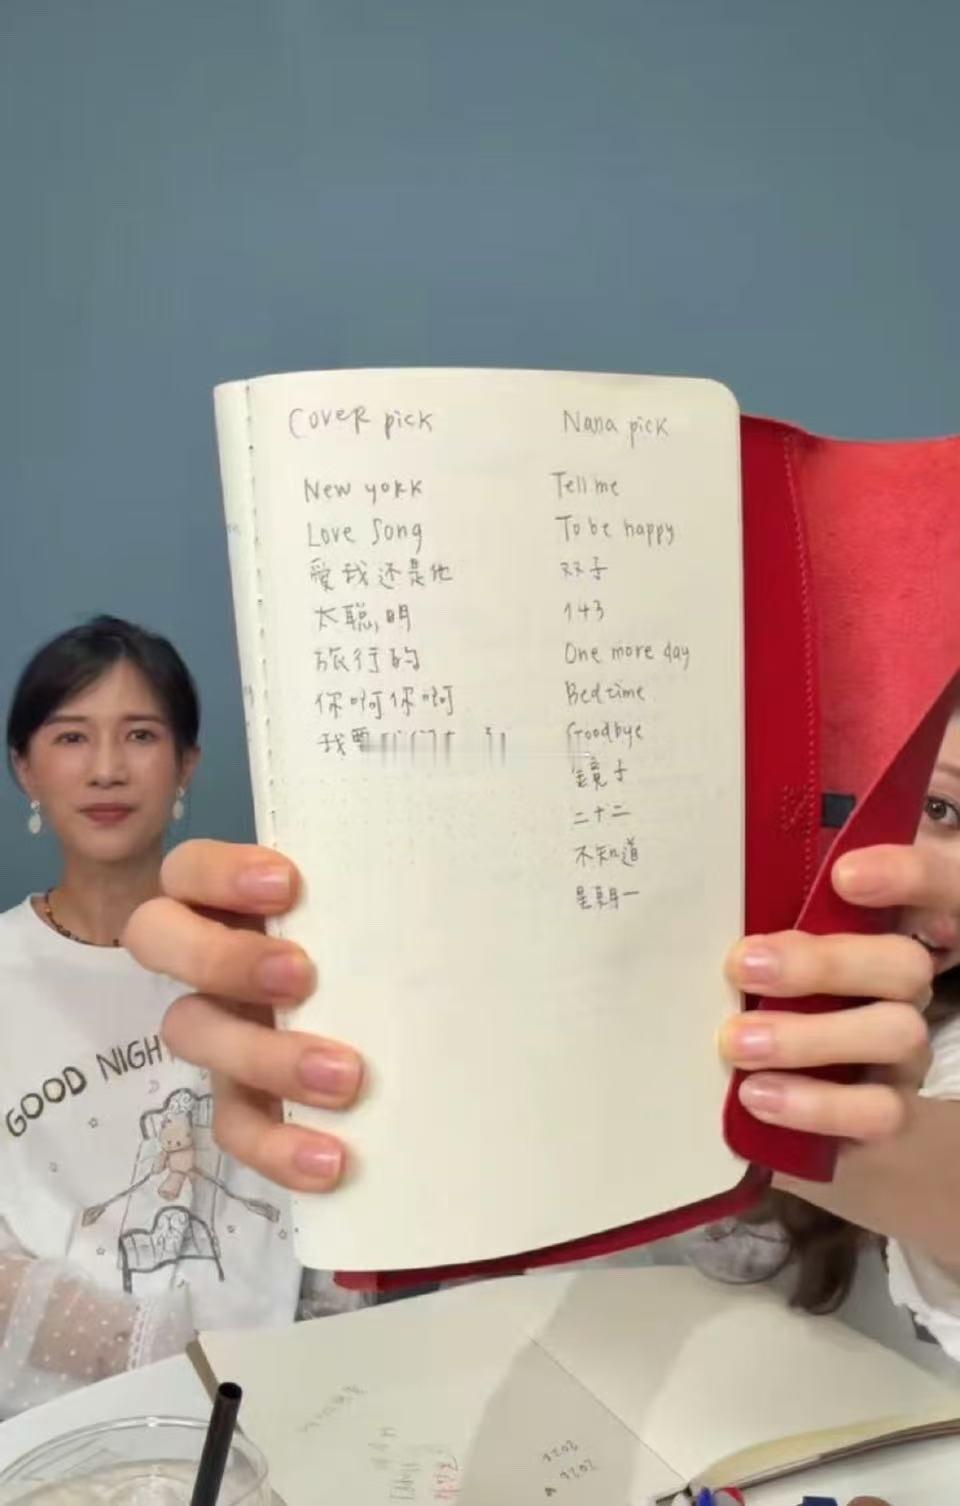 Cover pick
New york
Love Song
愛我还是他
太聪明
旅行的
你啊你啊
我要
Nana pick
Tell me
To be happy
双子
143
One more day
Bedtime
Goodbye
镜子
二十二
不知道
星期一
GOOD NIGH